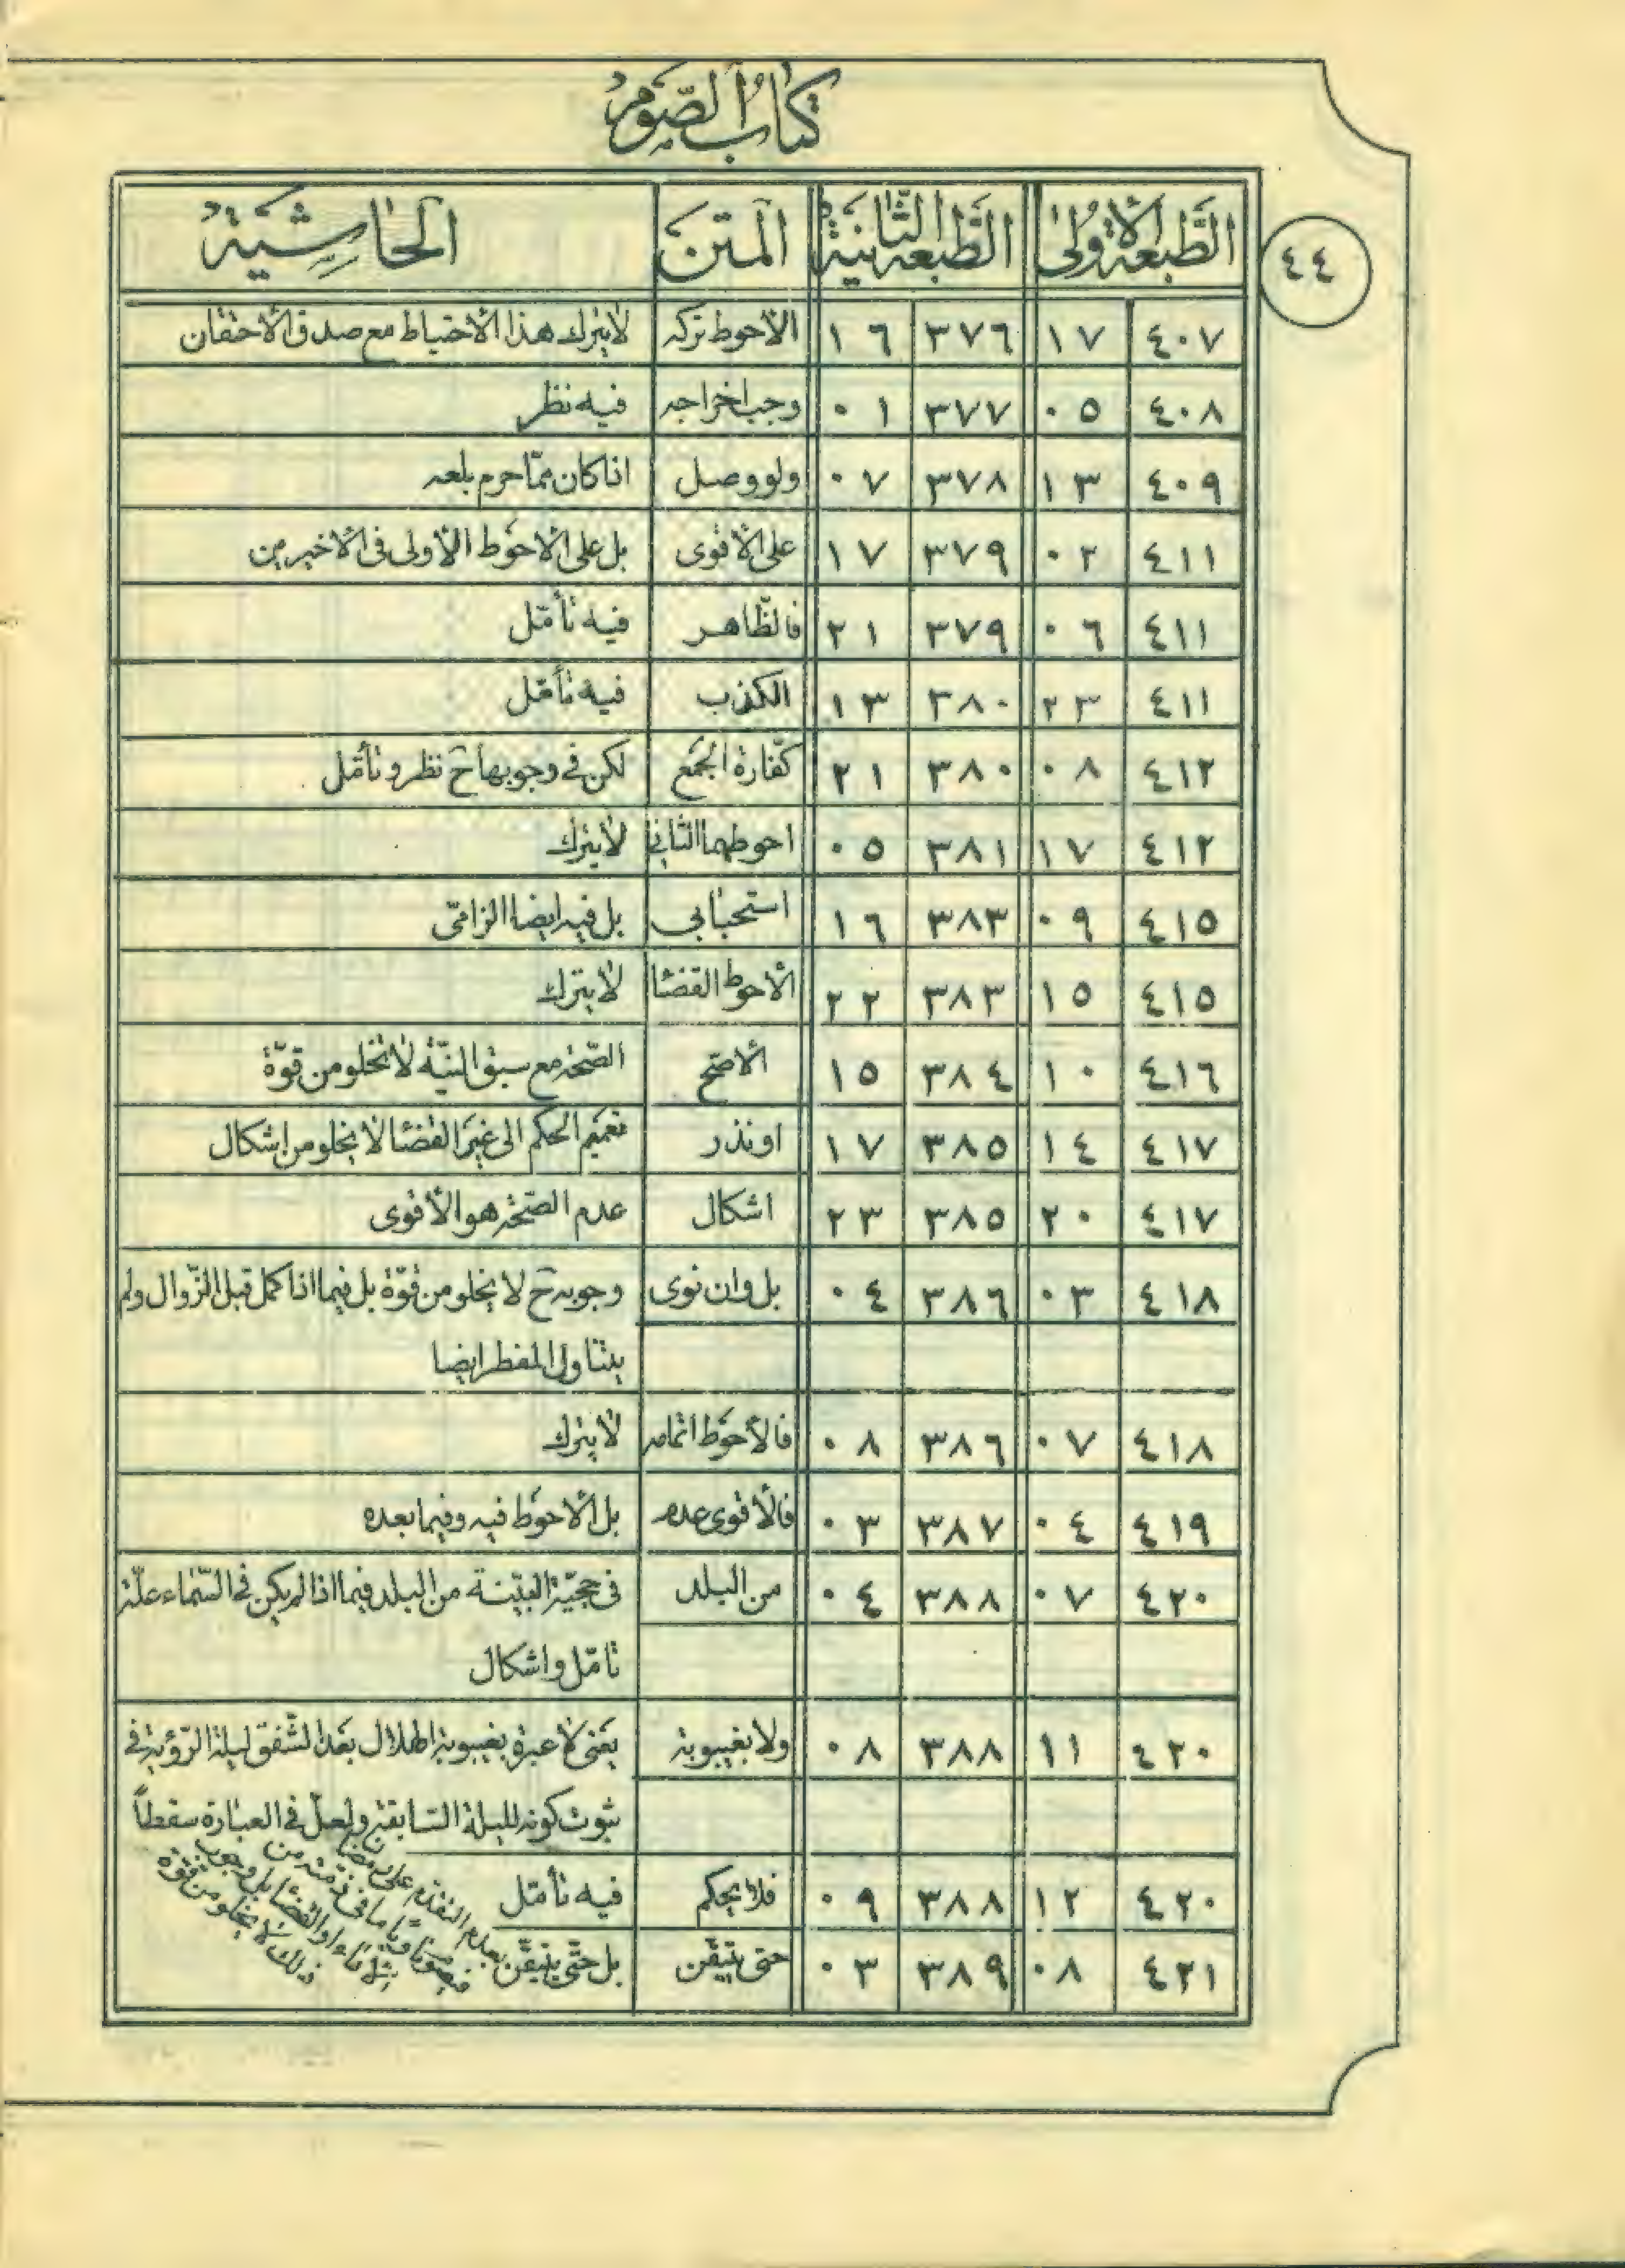 كتاب الصّوم
٤٤
الطّبعة الأولى الطّبعة الثّانية المتن الحاشية
٤٠٧ ١٧ ٣٧٦ ١٦ الأحوط تركه لا يترك هذا الاحتياط مع صدق الاحتقان
٤٠٨ ٠٥ ٣٧٧ ٠١ وجب اخراجه فيه نظر
٤٠٩ ١٣ ٣٧٨ ٠٧ ولو وصل اذا كان ممّا حرم بلعه
٤١١ ٠٢ ٣٧٩ ١٧ على الأقوى بل على الاحوط الأولى فى الاخيرين
٤١١ ٠٦ ٣٧٩ ٢١ فالظّاهر فيه تأمّل
٤١١ ٢٣ ٣٨٠ ١٣ الكذب فيه تأمّل
٤١٢ ٠٨ ٣٨٠ ٢١ كفّارة الجمع لكن فى وجوبها ح نظر وتأمّل
٤١٢ ١٧ ٣٨١ ٠٥ احوطهما الثانى لا يترك
٤١٥ ٠٩ ٣٨٣ ١٦ استحبابي بل فيه ايضا الزامىّ
٤١٥ ١٥ ٣٨٣ ٢٢ الأحوط القضا لا يترك
٤١٦ ١٠ ٣٨٤ ١٥ الاصحّ الصّحة مع سبق النيّة لا تخلو من قوّة
٤١٧ ١٤ ٣٨٥ ١٧ او نذر تعميم الحكم الى غير القضا لا يخلو من اشكال
٤١٧ ٢٠ ٣٨٥ ٢٣ اشكال عدم الصّحة هو الأقوى
٤١٨ ٠٣ ٣٨٦ ٠٤ بل وان نوى وجوبه ح لا يخلو من قوّة بل فيما اذا كمل قبل الزّوال ولم
يتناول المفطر ايضا
٤١٨ ٠٧ ٣٨٦ ٠٨ فالأحوط اتمامه لا يترك
٤١٩ ٠٤ ٣٨٧ ٠٣ فالأقوى عدمه بل الاحوط فيه وفيما بعده
٤٢٠ ٠٧ ٣٨٨ ٠٤ من البلد فى حجيّة البيّنة من البلد فيما اذا لم يكن فى السّماء علّة
تامّل واشكال
٤٢٠ ١١ ٣٨٨ ٠٨ ولا بغيبوبة يعنى لا عبرة بغيبوبة الهلال بعد الشّفق ليلة الرّؤية فى
ثبوت كونه لليلة السّابقة ولعلّ فى العبارة سقطاً
٤٢٠ ١٢ ٣٨٨ ٠٩ فلا يحكم فيه تأمّل
٤٢١ ٠٨ ٣٨٩ ٠٣ حتى يتيقّن بل حتّى يتيقّن بعدم التقدّم على رمضان
ما فى ذمّته من
او القضا بل وجوب
ذلك لا يخلو من قوّة